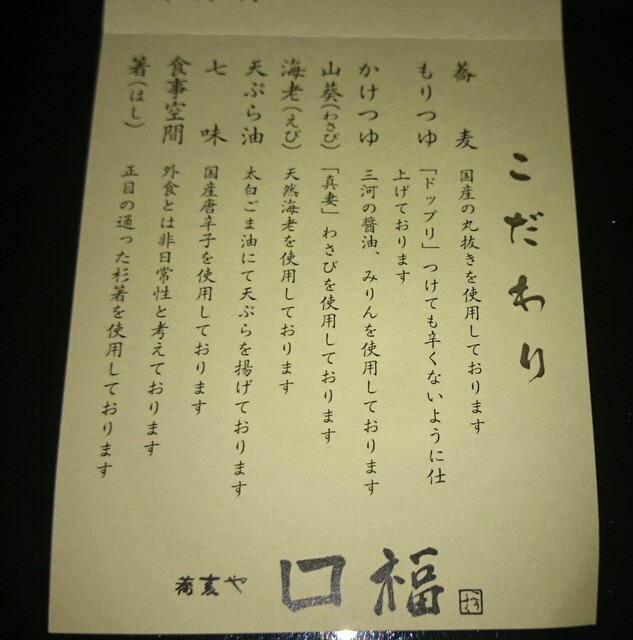 こだわり
蕎麦 国産の丸抜きを使用しております
もりつゆ 「ドップリ」つけても辛くないように仕
上げております
かけつゆ 三河の醤油、みりんを使用しております
山葵(わさび) 「真妻」わさびを使用しております
海老(えび) 天然海老を使用しております
天ぷら油 太白ごま油にて天ぷらを揚げております
七味 国産唐辛子を使用しております
食事空間 外食とは非日常性と考えております
箸(はし) 正目の通った杉箸を使用しております
蕎麦や 口福